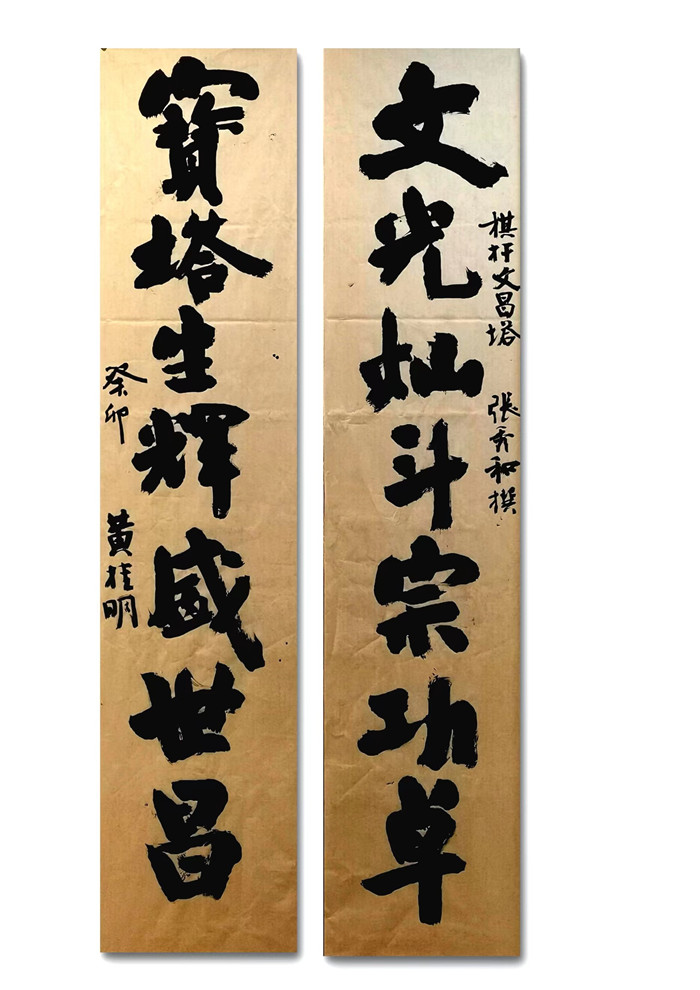 文光灿斗宗功卓
棋杆文昌塔 张秀和撰
寶塔生辉盛世昌
癸卯 黄桂明